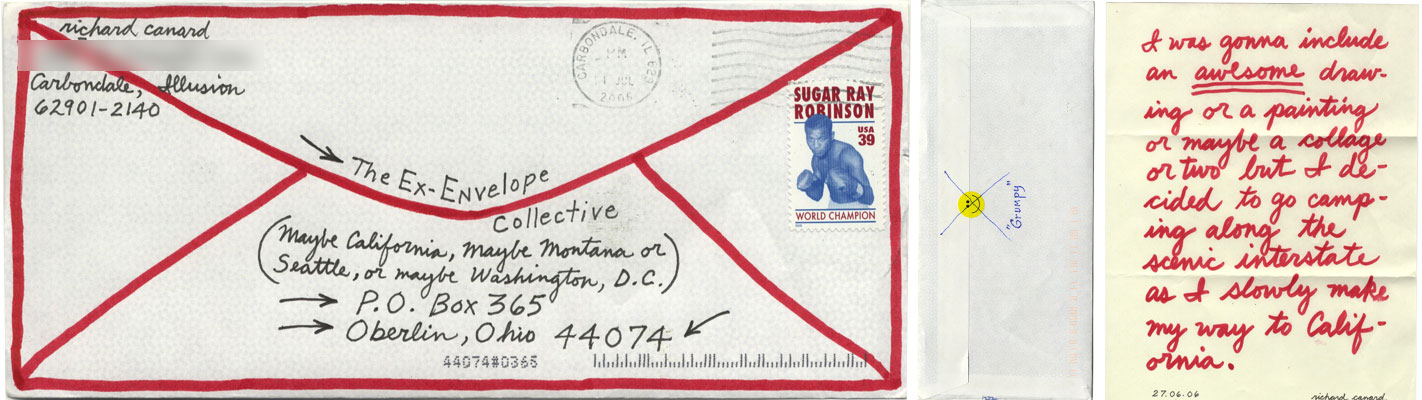 richard canard
Carbondale, Illusion
62901-2140
CARBONDALE, IL 629
PM
1 JUL
2006
SUGAR RAY
ROBINSON
USA
39
WORLD CHAMPION
The Ex-Envelope
Collective
(Maybe California, Maybe Montana or
Seattle, or maybe Washington, D.C.)
P.O. Box 365
Oberlin, Ohio 44074
44074#0365
"Grumpy"
I was gonna include
an awesome draw-
ing or a painting
or maybe a collage
or two but I de-
cided to go camp-
ing along the
scenic interstate
as I slowly make
my way to Calif-
ornia.
27.06.06
richard canard